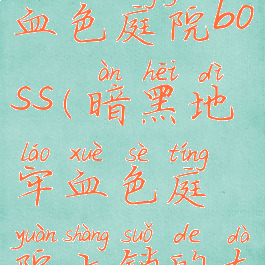 血色庭院bo
àn hēi dì
ss(暗黑地
láo xuè sè tíng
牢血色庭
yuàn shàng suǒ de dà
院上锁的大